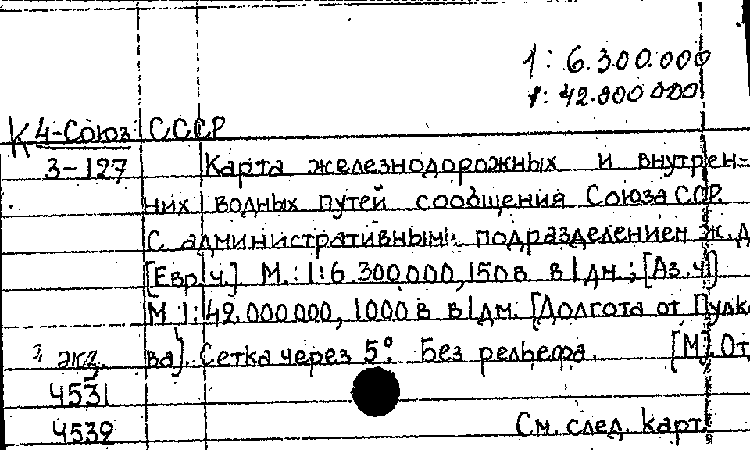 1: 6.300.000
1: 42.000 000
К 4-Союз СССР
3-127 Карта железнодорожных и внутрен-
них водных путей сообщения Союза ССР.
С административным подразделением ж.д
[Евр.ч.] М.: 1:6.300.000, 150 в в 1 дм.; [Аз.ч.]
М 1:42.000.000, 1000 в в 1 дм. [Долгота от Пулко
3 экз. ва]. Сетка через 5°. Без рельефа. [М]. От
4531
4532 См. след. карт.